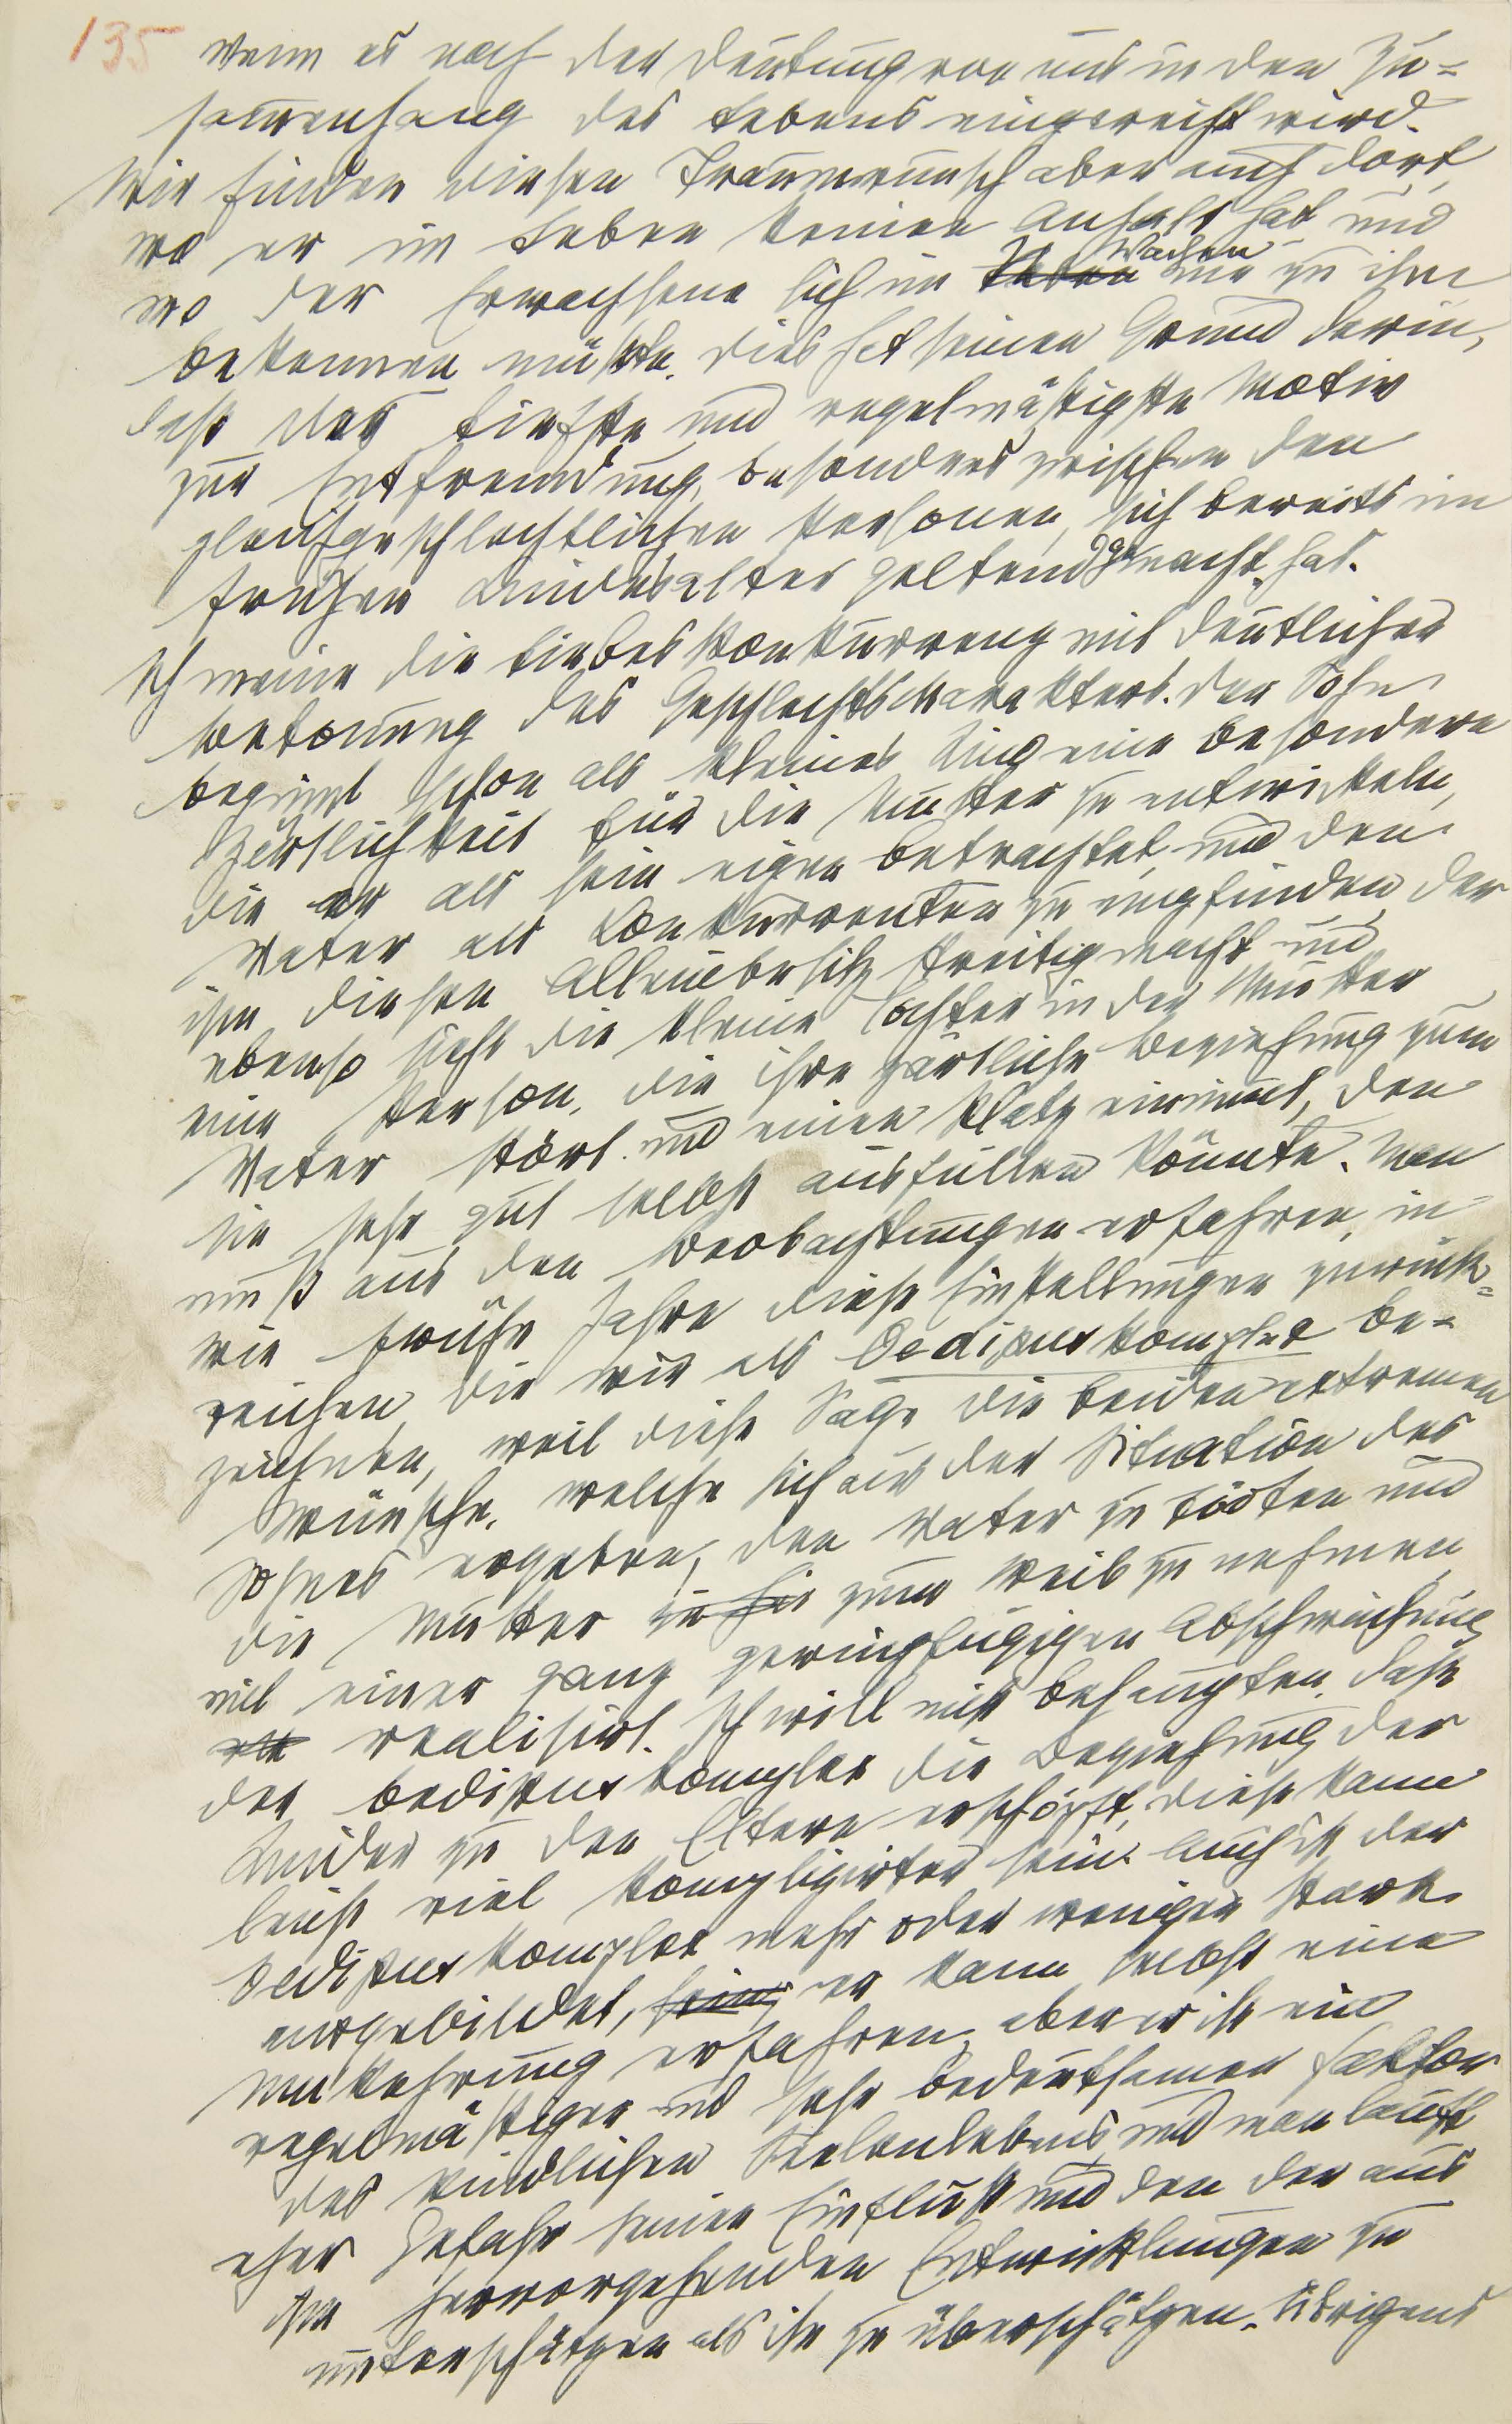 135
wenn es nach der Deutung von uns in den Zu-
sammenhang des Lebens eingereiht wird.
Wir finden diesen Traumwunsch aber auch dort,
wo er im Leben keinen Anhalt hat und
wo der Erwachsene sich im Wachen nie zu ihm
bekennen müßte. Dies hat seinen Grund darin,
daß das tiefste und regelmäßigste Motiv
zur Entfremdung, besonders zwischen den
gleichgeschlechtlichen Personen, sich bereits im
frühen Kindesalter geltend gemacht hat.
Ich meine die Liebeskonkurrenz mit deutlicher
Betonung des Geschlechtscharakters. Der Sohn
beginnt schon als kleines Kind eine besondere
Zärtlichkeit für die Mutter zu entwickeln,
die er als sein eigen betrachtet, und den
Vater als Konkurrenten zu empfinden, der
ihm diesen Alleinbesitz streitig macht und
ebenso sieht die kleine Tochter in der Mutter
eine Person, die ihre zärtliche Beziehung zum
Vater stört und einen Platz einnimmt, den
sie sehr gut selbst ausfüllen könnte. Man
muß aus den Beobachtungen erfahren, in
wie frühe Jahre diese Einstellungen zurück-
reichen, die wir als Oedipuskomplex be-
zeichnen, weil diese Sage die beiden extremen
Wünsche, welche sich aus der Situation des
Sohnes ergeben, den Vater zu tödten und
die Mutter zu zum Weib zu nehmen,
mit einer ganz geringfügigen Abschwächung
realisirt. Ich will nicht behaupten, daß
der Oedipuskomplex die Beziehung der
Kinder zu den Eltern erschöpft, diese kann
leicht viel komplizirter sein. Auch ist der
Oedipuskomplex mehr oder weniger stark
ausgebildet, er kann selbst eine
Umkehrung erfahren, aber er ist ein
regelmäßiger und sehr bedeutsamer Faktor
des kindlichen Seelenlebens, und man läuft
eher Gefahr seinen Einfluß und den der aus
ihm hervorgehenden Entwicklungen zu
unterschätzen als ihn zu überschätzen. Übrigens